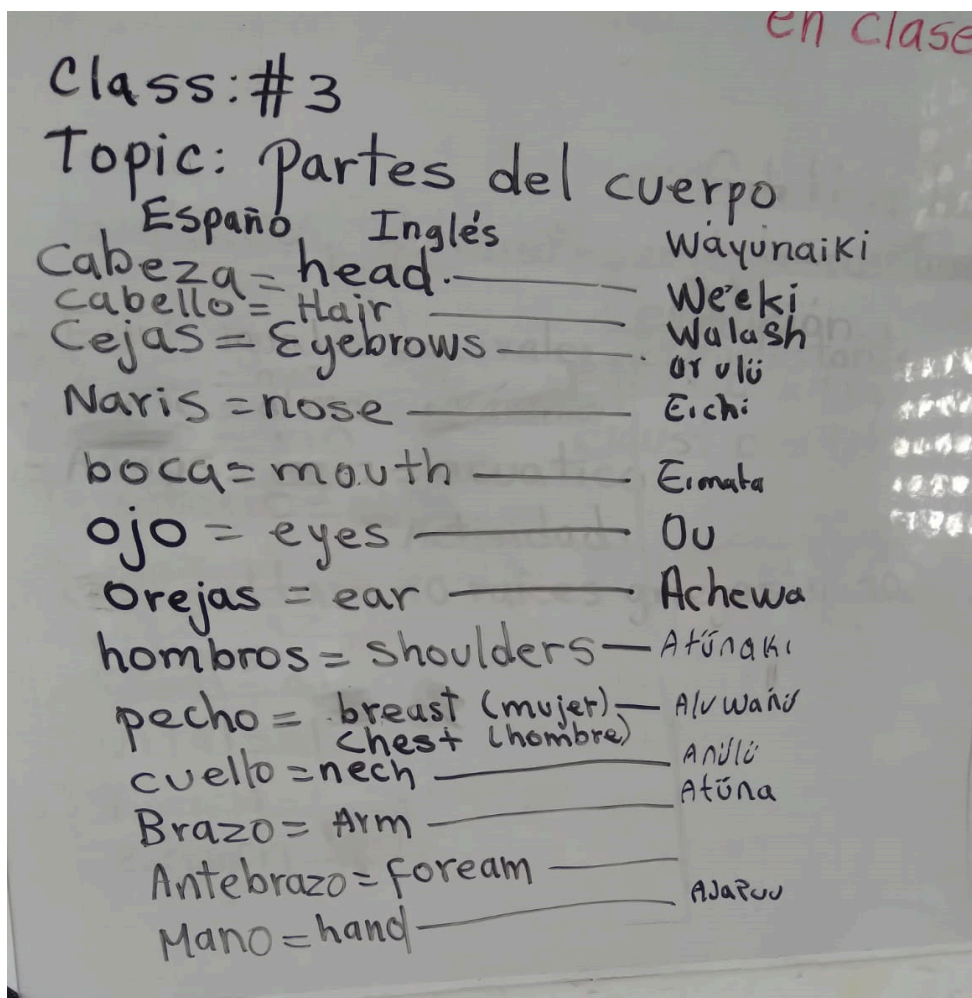 en clase
Class: #3
Topic: Partes del cuerpo
Españo Inglés Wayunaiki
Cabeza = head. We'eki
cabello = Hair Walash
Cejas = Eyebrows urulü
Naris = nose Eichi
boca = mouth Eimata
ojo = eyes Ou
Orejas = ear Achewa
hombros = shoulders Atünaki
pecho = breast (mujer)
chest (hombre)
cuello = nech Anülü
Brazo = Arm Atüna
Antebrazo = foream
Mano = hand Ajapuu